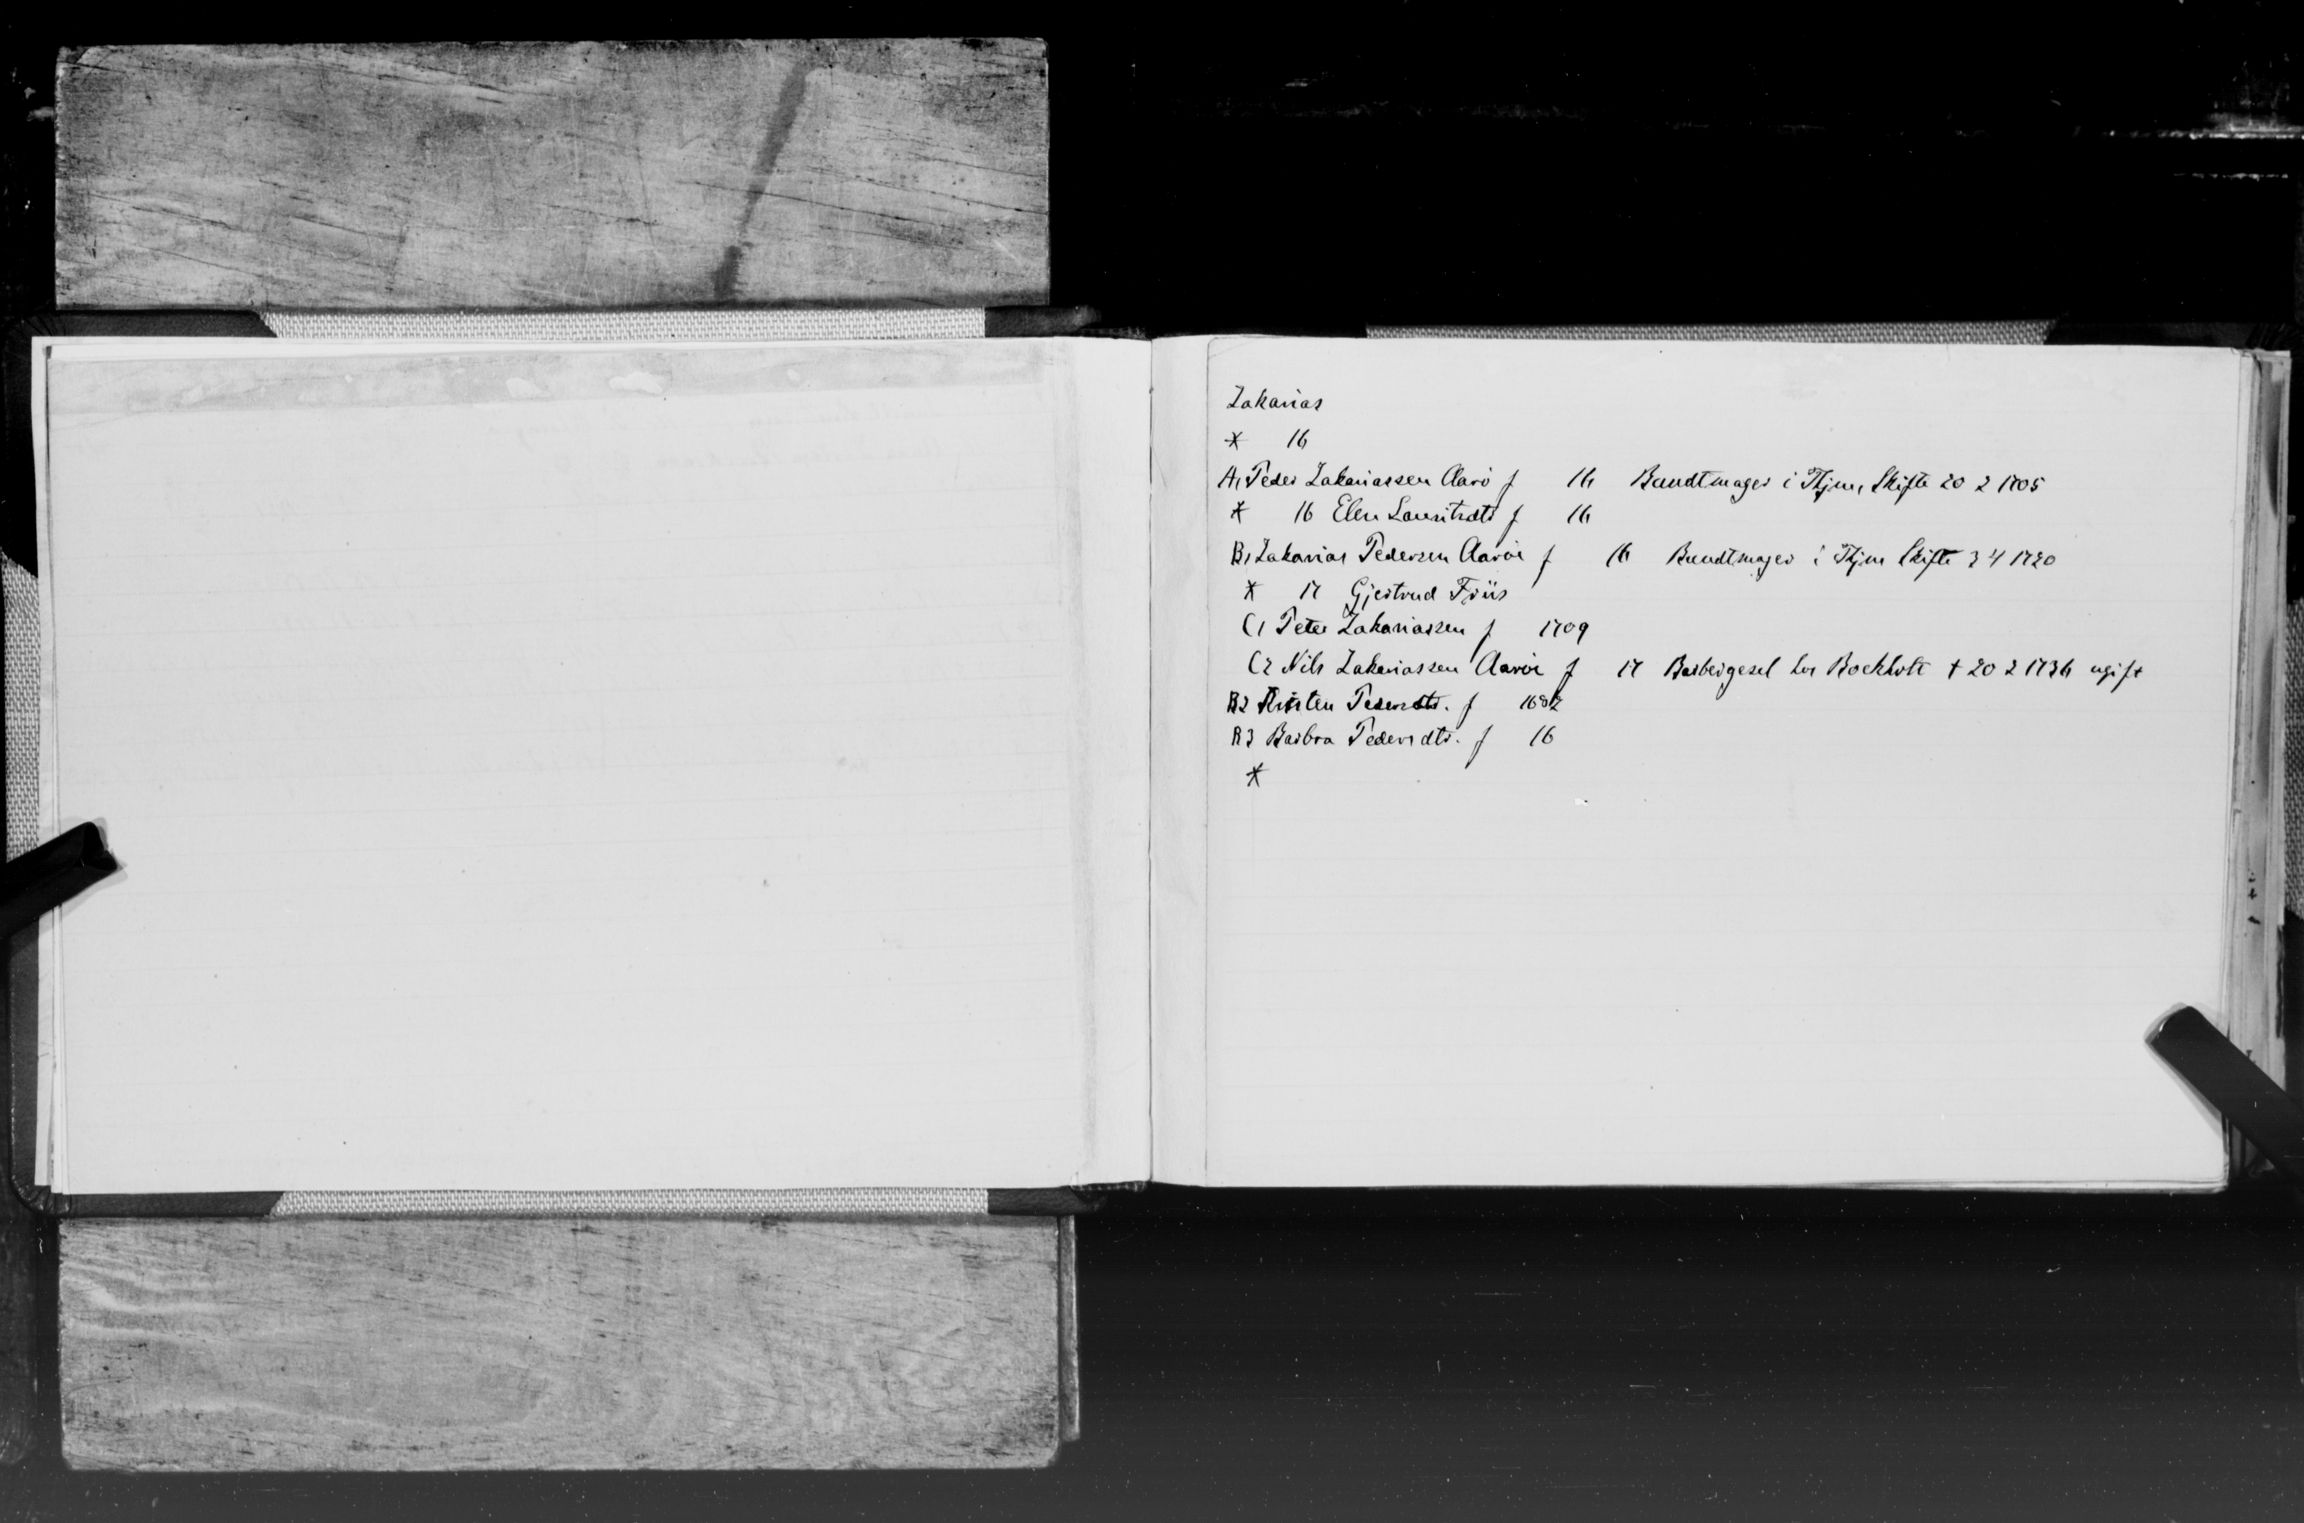 Zakarias
* 16
A1 Peder Zakariassen Aarö f 16 Bundtmager i Thjm, Skifte 20 2 1705
* 16 Elen Lauritzdtr f 16
B1 Zakarias Pedersen Aaröe f 16 Bundtmager i Thjm Skifte 3 4 1720
* 17 Gjertrud Friis
C1 Peter Zakariassen f 1709
C2 Nils Zakariassen Aaröe f 17 Barbergesel hos Bockholt † 20 2 1736 ugift
B2 Kirsten Pedersdtr. f 1687
B3 Barbra Pedersdtr. f 16
*